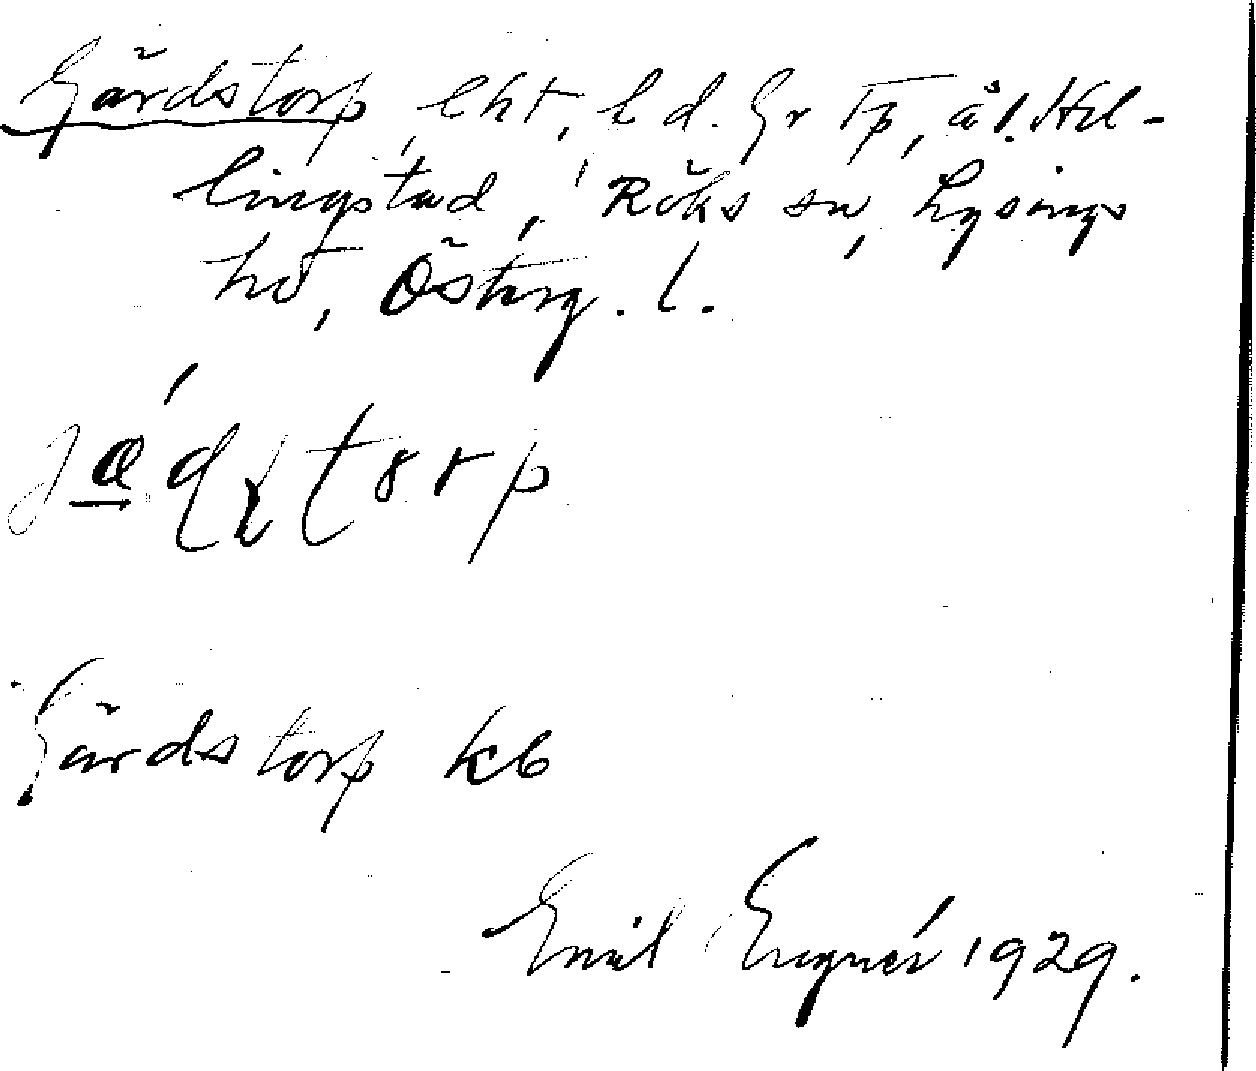 Gärdstorp, lht, l d. Gr Tp, ål. Hel-
lingstad, Röks sn, Lysings
hd, Österg. l.
Gärdstorp kb
Emil Engnér 1929.